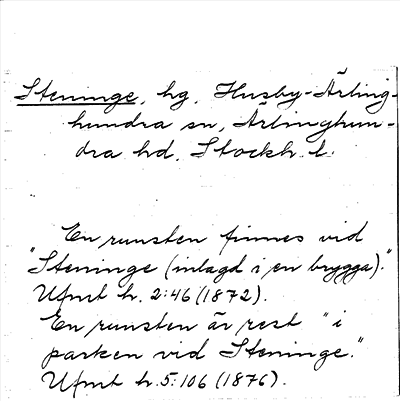 Steninge, hg, Husby-Ärling-
hundra sn, Ärlinghun-
dra hd, Stockh. l.
En runsten finnes vid
"Steninge (inlagd i en brygga)."
Ufmt h. 2:46 (1872).
En runsten är rest "i
parken vid Steninge."
Ufmt h. 5:106 (1876).